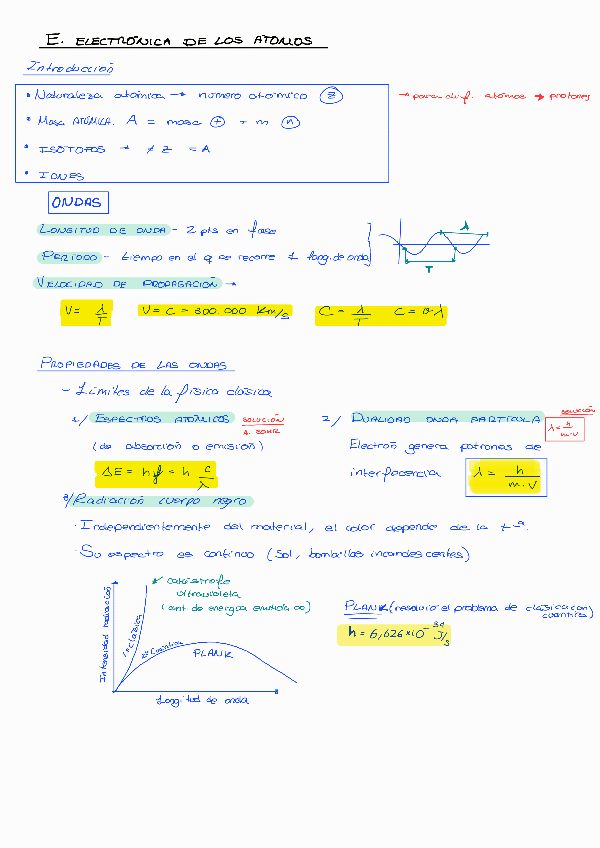 E. ELECTRÓNICA DE LOS ÁTOMOS
Introducción
• Naturaleza atómica → número atómico Z → para dif. átomos → protones
• Masa ATÓMICA. A = masa + + m n
• ISÓTOPOS → ≠ Z = A
• IONES
ONDAS
LONGITUD DE ONDA - 2 pts en fase
PERÍODO - tiempo en el q se recorre 1 long. de onda
λ
T
VELOCIDAD DE PROPAGACIÓN →
V = λ/T V = C = 300.000 Km/s C = λ/T C = υ·λ
PROPIEDADES DE LAS ONDAS
- Límites de la física clásica
1/ ESPECTROS ATÓMICOS SOLUCIÓN
(de absorción o emisión)
ΔE = hf = h c/λ
2/ DUALIDAD ONDA PARTÍCULA SOLUCIÓN λ = h/m·v
Electrón genera patrones de
interferencia λ = h/m·v
3/ Radiación cuerpo negro
· Independientemente del material, el color depende de la tª.
· Su espectro es continuo (Sol, bombillas incandescentes)
catástrofe
ultravioleta
(cant de energía emitida ∞)
Intensidad radiación
1ª Clásica
2ª Cuántica
PLANK
Longitud de onda
PLANK (resolvió el problema de clásica con
cuántica)
h = 6,626×10⁻³⁴ J/s